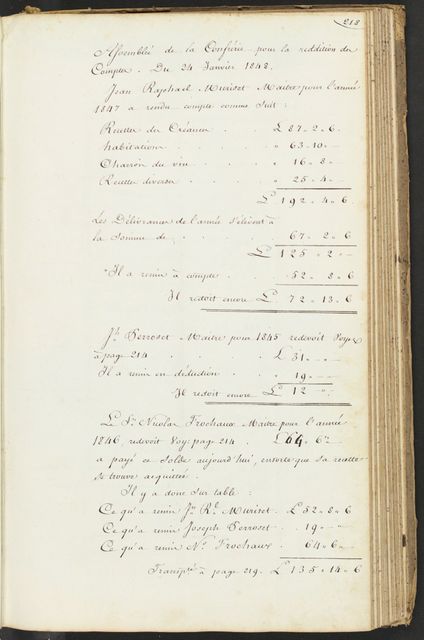 218
Assemblée de la Confrérie pour la reddition du
Compte. Du 24 Janvier 1848.
Jean Raphael Muriset Maitre pour l'année
1847 a rendu compte comme suit :
Recettes des Créances . . . £ 87 " 2 " 6.
habitations . . . " 63 " 10 "
Charron du vin . . . " 16 " 8 "
Recettes diverses . . . " 25 " 4 "
£ 192 " 4 " 6
Les Délivrances de l'année s'élèvent à
la Somme de . . . 67 " 2 " 6
£ 125 " 2 "
Il a remis à compte . . . 52 " 8 " 6
Il redoit encore £ 72 " 13 " 6
Jh Perroset Maitre pour 1845 redevoit Voyez
à page 214 . . . £ 31 " "
Il a remis en déduction . . 19 " "
Il redoit encore £ 12 "
Le Sr Nicolas Frochaux Maitre pour l'année
1846, redevoit Voy: page 214 . £ 64 " 6 "
a payé ce Solde aujourd'hui, ensorte que sa recette
se trouve acquittée.
Il y a donc sur table :
Ce qu'a remis Jn Rl Muriset . £ 52 " 8 " 6
Ce qu'a remis Joseph Perroset . 19 " "
Ce qu'a remis Ns Frochaux . 64 " 6 "
Transpté à page 219. £ 135 " 14 " 6